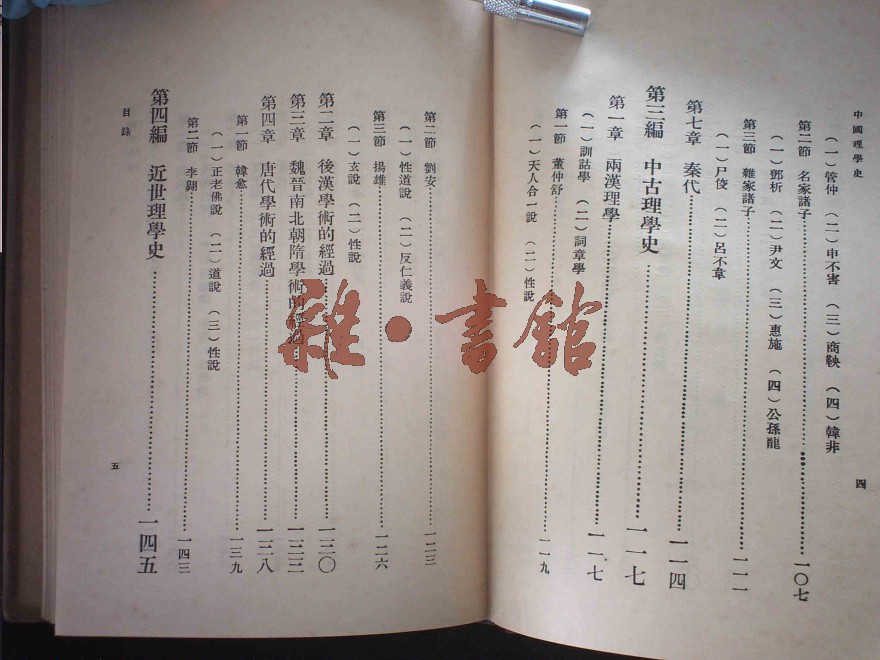 中國理學史
（一）管仲 （二）申不害 （三）商鞅 （四）韓非
第二節 名家諸子……一〇七
（一）鄧析 （二）尹文 （三）惠施 （四）公孫龍
第三節 雜家諸子……一一一
（一）尸佼 （二）呂不韋
第七章 秦代……一一四
第三編 中古理學史……一一七
第一章 兩漢理學……一一七
（一）訓詁學 （二）詞章學
第一節 董仲舒……一一九
（一）天人合一說 （二）性說
四
第二節 劉安……一二三
（一）性道說 （二）反仁義說
第三節 揚雄……一二六
（一）玄說 （二）性說
第二章 後漢學術的經過……一三〇
第三章 魏晉南北朝隋學術的經過……一三三
第四章 唐代學術的經過……一三八
第一節 韓愈……一三九
（一）正老佛說 （二）道說 （三）性說
第二節 李翺……一四三
第四編 近世理學史……一四五
目錄
五
雜·書館